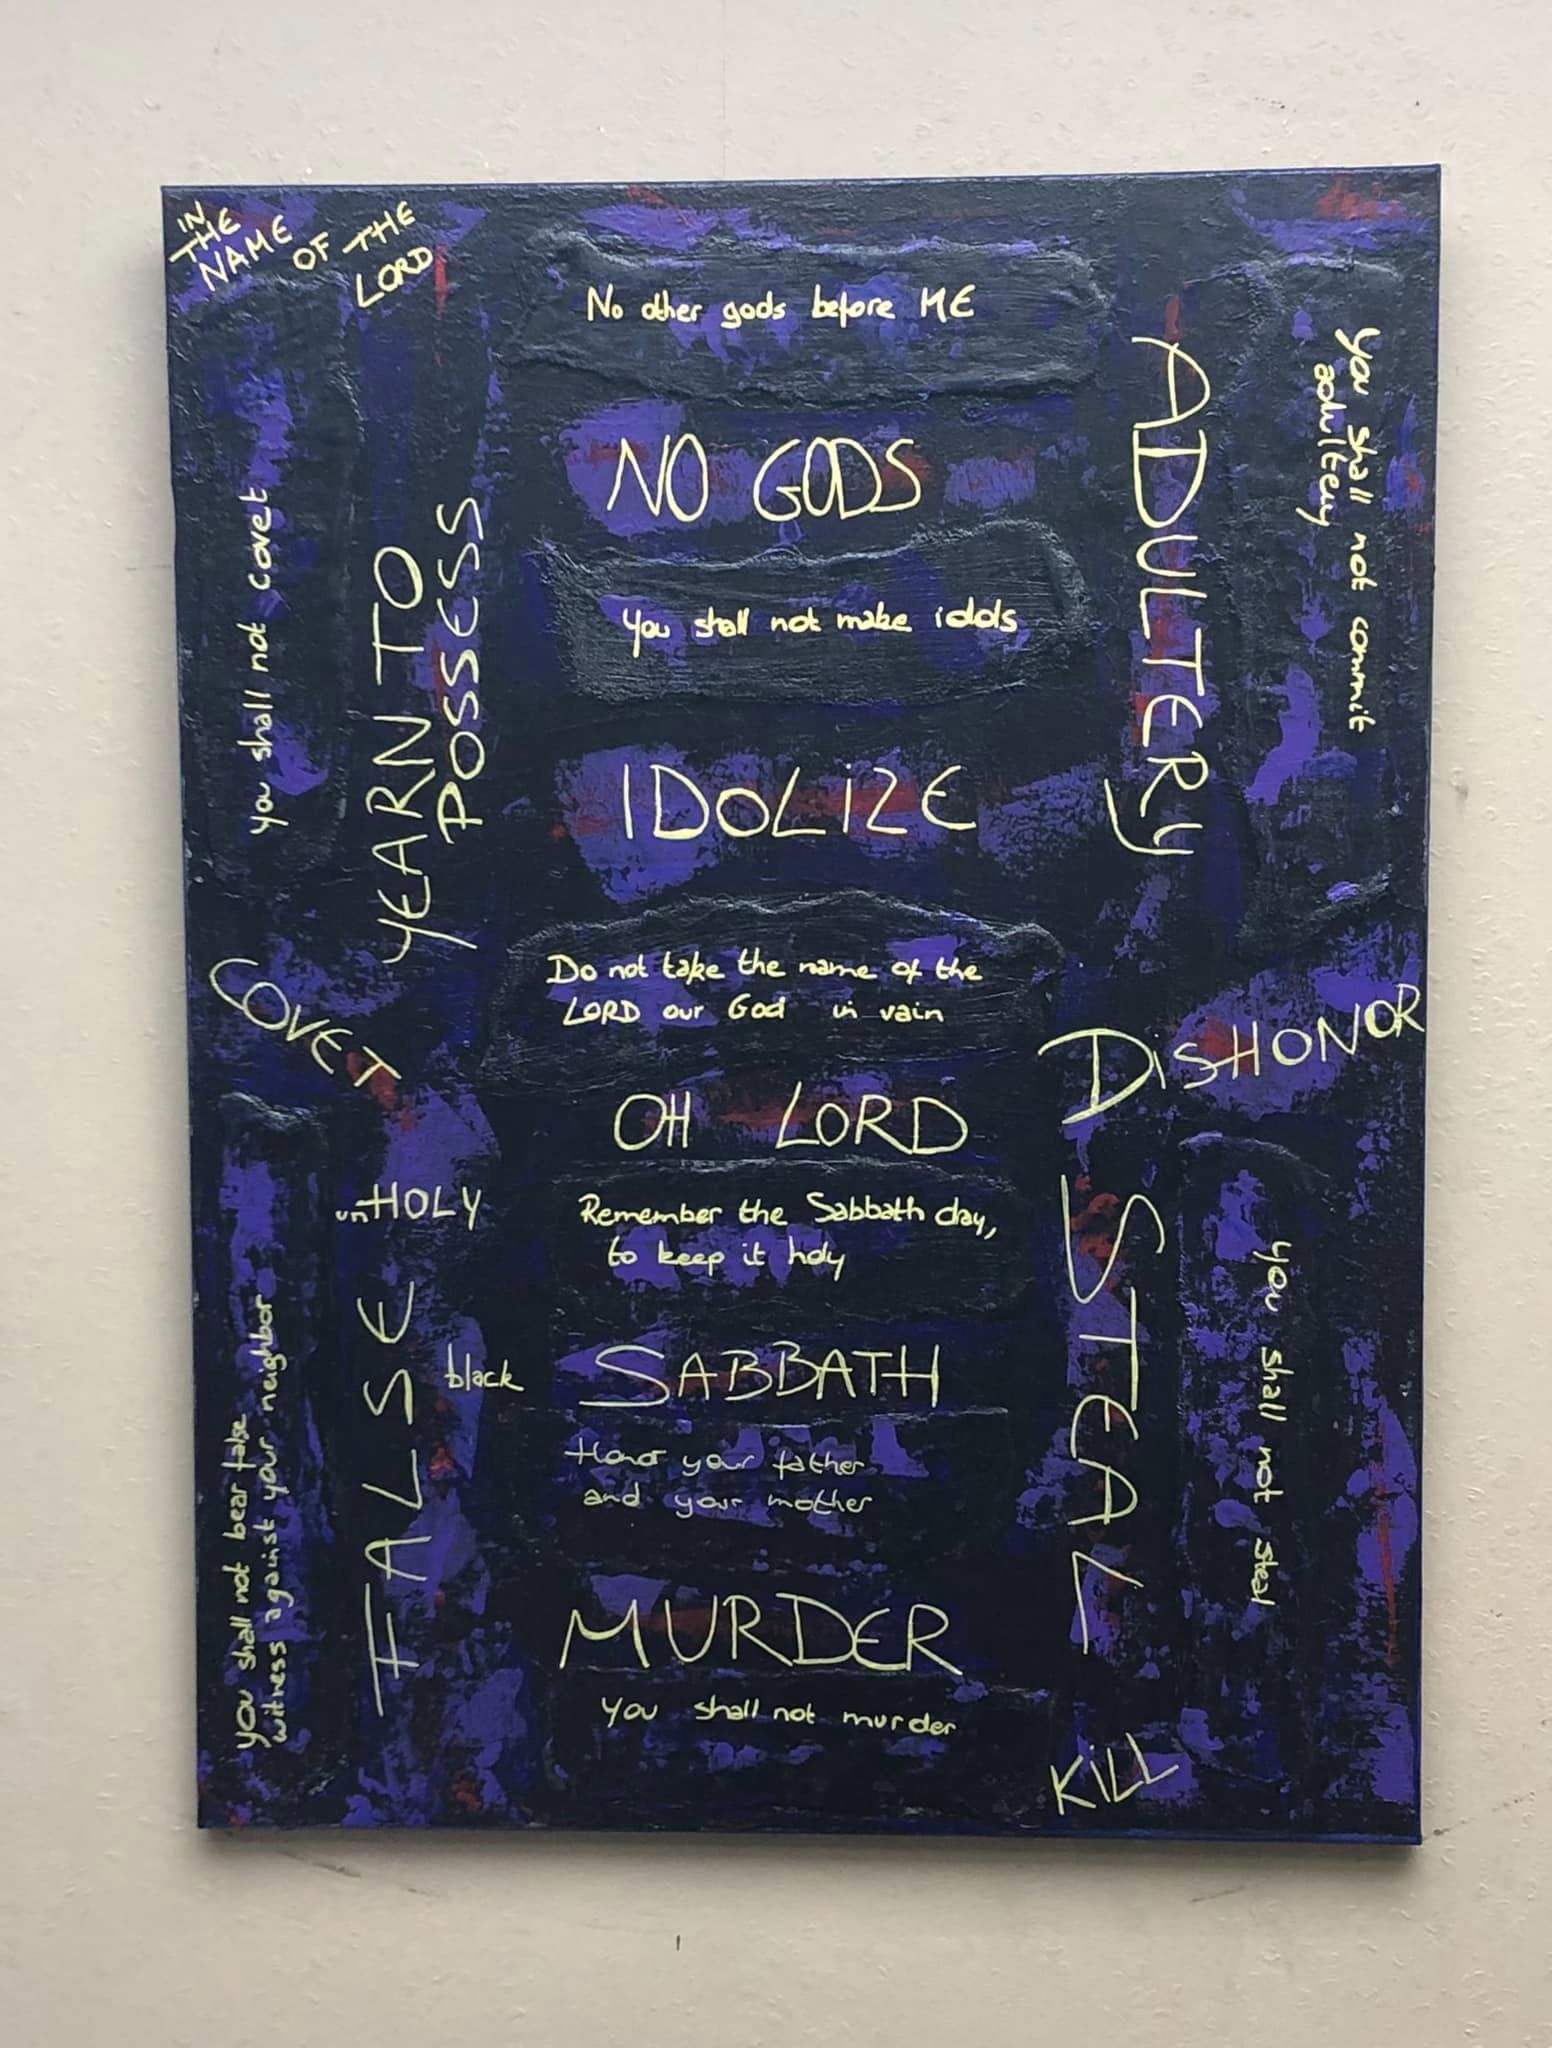 IN
THE
NAME
OF THE
LORD
No other gods before ME
NO GODS
You shall not make idols
IDOLIZE
Do not take the name of the
LORD our God in vain
OH LORD
Remember the Sabbath day,
to keep it holy
black SABBATH
Honor your father
and your mother
MURDER
you shall not murder
KiLL
you shall not covet
YEARN TO
POSSESS
COVET
unHOLY
FALSE
you shall not bear false
witness against your neighbor
you shall not commit
adultery
ADULTERY
DisHONOR
STEAL
you shall not steal